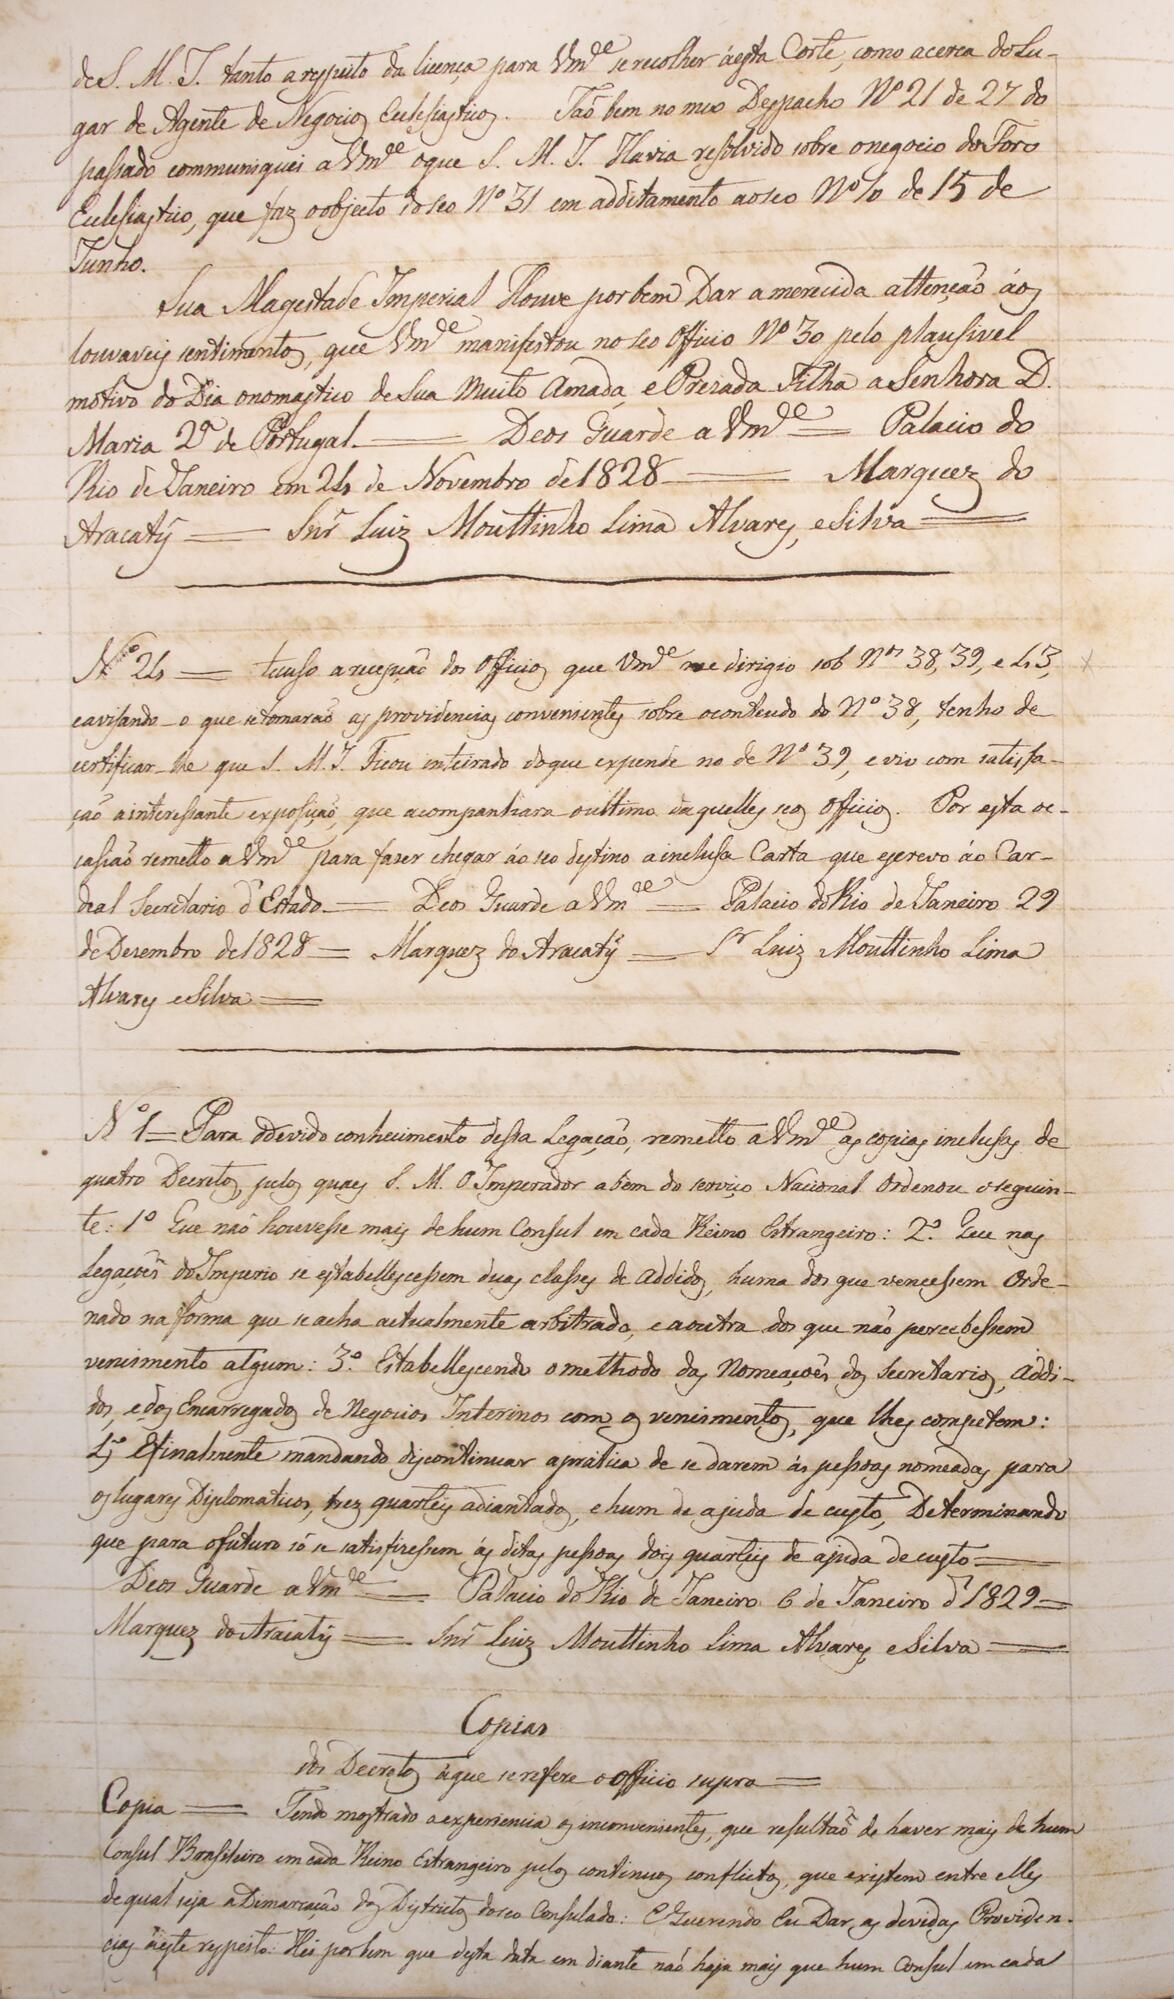 de S. M. I. tanto a respeito da licença para Vm.ce se recolher áesta Corte, como acerca do Lu-
gar de Agente de Negocios Eclesiasticos. Tão bem no meo Despacho Nº 21 de 27 do
passado communiquei a Vm.ce oque S. M. I. Havia resolvido sobre onegocio do Foro
Eclesiastico, que faz oobjecto do seo Nº 31 em additamento ao seo Nº 10 de 15 de
Junho.
Sua Magestade Imperial Houve por bem Dar a merecida attenção áos
louvaveis sentimentos, que Vm.ce manifestou no seo Officio Nº 30 pelo plausivel
motivo do Dia onomastico de Sua Muito Amada, e Prezada Filha a Senhora D.
Maria 2ª de Portugal. == Deos Guarde a Vm.ce == Palacio do
Rio de Janeiro em 24 de Novembro de 1828 == Marquez do
Aracatÿ == Snr. Luiz Mouttinho Lima Alvares, e Silva ==
Nº 24 == Accuso a recepção dos Officios que Vm.ce me dirigio sob Nos 38, 39, e 43,
e avisando-o que se tomarão as providencias convenientes sobre o conteudo do Nº 38, tenho de
certificar-lhe que S. M. I. Ficou inteirado doque expende no de Nº 39, e vio com satisfa-
ção a interessante exposição, que acompanhara o ultimo daquelles seos Officios. Por esta oc-
casião remetto a Vm.ce para fazer chegar áo seo destino a inclusa Carta que escrevo áo Car-
deal Secretario d'Estado == Deos Guarde a Vm.ce == Palacio do Rio de Janeiro 29
de Desembro de 1828 == Marquez do Aracatÿ == Sr. Luiz Mouttinho Lima
Alvares e Silva ==
Nº 1 == Para odevido conhecimento dessa Legação, remetto a Vm.ce as copias inclusas de
quatro Decretos, pelos quaes S. M. O Imperador a bem do serviço Nacional Ordenou o seguin-
te: 1º Que não houvesse mais de hum Consul em cada Reino Estrangeiro: 2º Que nas
Legações do Imperio se estabellescessem duas classes de Addidos, huma dos que vencessem Orde-
nado na forma que se acha actualmente arbitrado, e a outra dos que não percebessem
vencimento algum: 3º Estabellescendo o methodo das Nomeações dos Secretarios, Addi-
dos, e dos Encarregados de Negocios Interinos com os vencimentos, que lhes competem:
4º E finalmente mandando discontinuar apratica de se darem ás pessoas nomeadas para
os lugares Diplomaticos, trez quarteis adiantados, e hum de ajuda de custo, Determinando
que para ofuturo só se satisfizessem ás ditas pessoas dois quarteis de ajuda de custo ==
Deos Guarde a Vm.ce == Palacio do Rio de Janeiro 6 de Janeiro d'1829 ==
Marquez do Aracatÿ == Snr. Luiz Mouttinho Lima Alvares e Silva ==
Copias
dos Decretos áque se refere o Officio supra ==
Copia == Tendo mostrado a experiencia os inconvenientes, que resultão de haver mais de hum
Consul Brasileiro em cada Reino Estrangeiro pelos continuos conflictos, que existem entre elles
de qual seja a Dimarcação dos Districtos do seo Consulado: E Querendo Eu Dar, as devidas Providen-
cias áeste respeito: Hei por bem que desta data em diante não haja mais que hum Consul em cada